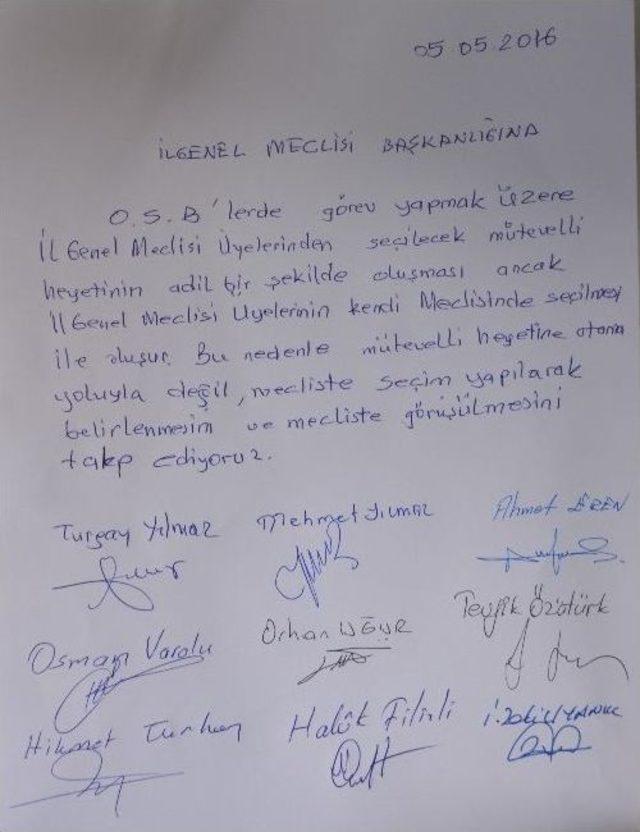 05.05.2016
İLGENEL MECLİSİ BAŞKANLIĞINA
O.S.B'lerde görev yapmak Üzere
İl Genel Meclisi Üyelerinden seçilecek mütevelli
heyetinin adil bir şekilde oluşması ancak
İl Genel Meclisi Üyelerinin kendi Meclisinde seçilmesi
ile oluşur. Bu nedenle mütevelli heyetine atama
yoluyla değil, mecliste seçim yapılarak
belirlenmesini ve mecliste görüşülmesini
talep ediyoruz.
Turgay Yılmaz Mehmet Yılmaz Ahmet EREN
Osman Varolu Orhan UĞUR Tevfik Öztürk
Hikmet Turhan Halûk Filizli